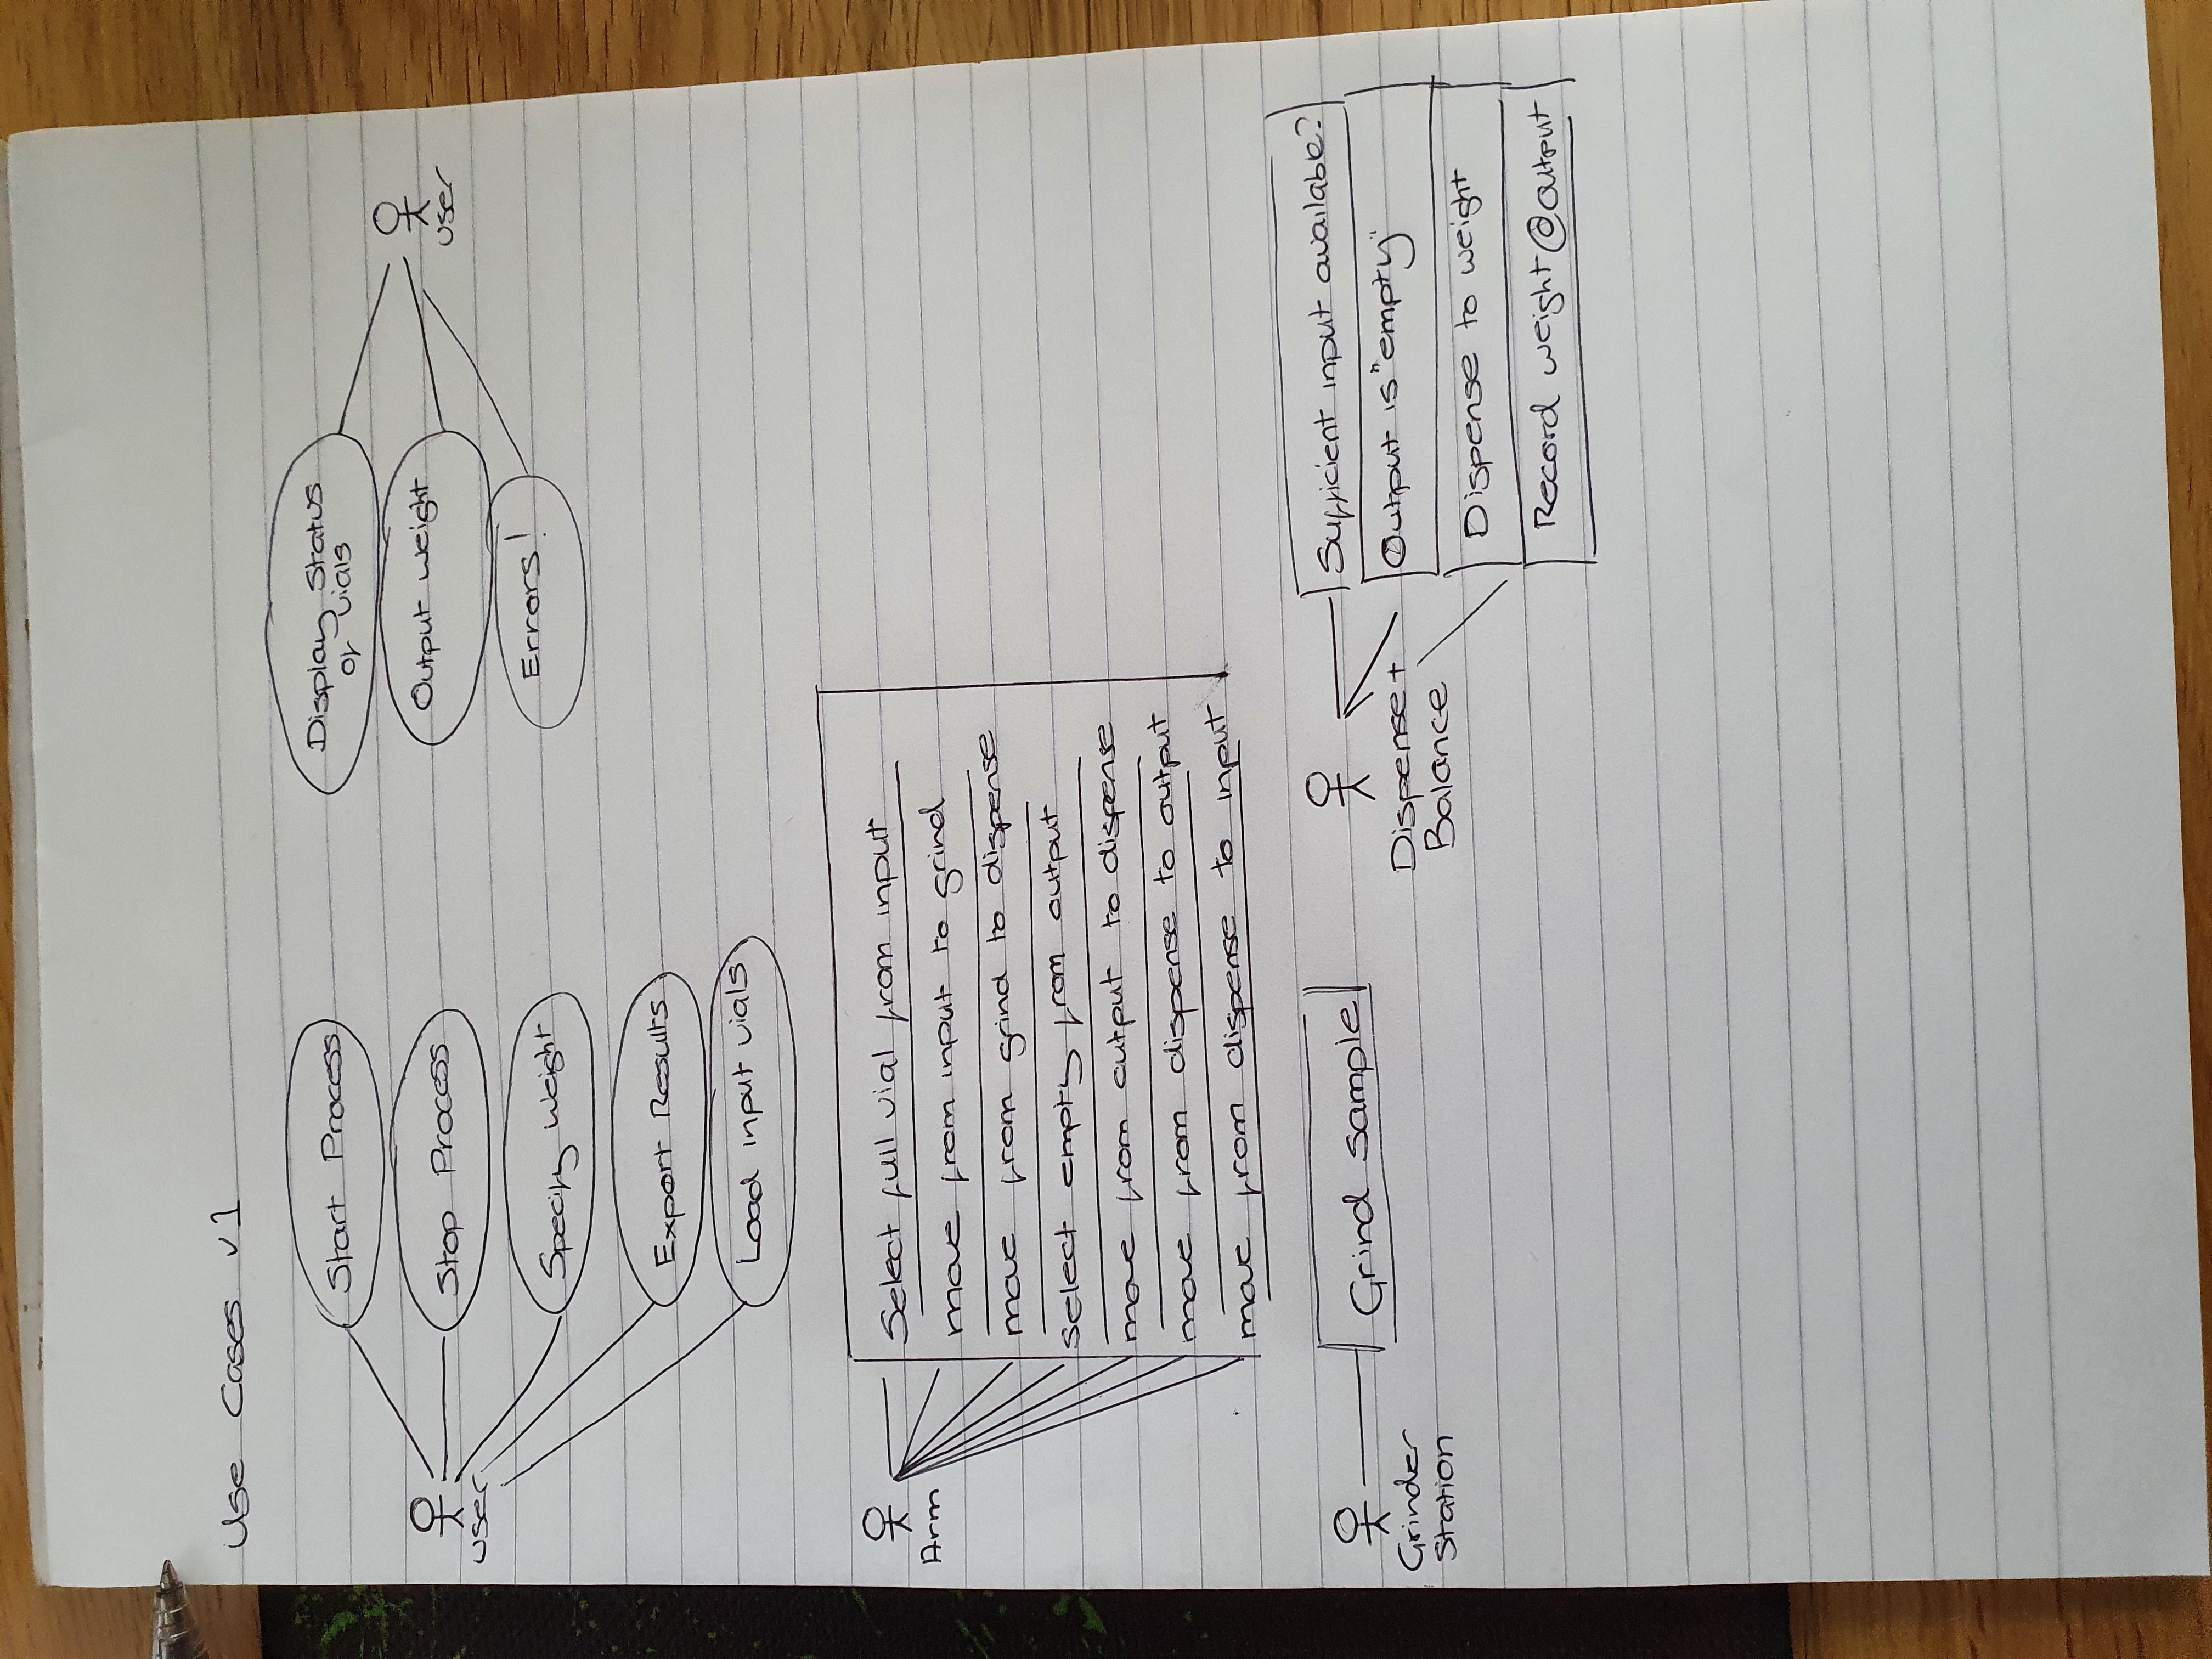 Use Cases v1
Start Process
Stop Process
user
Specify Weight
Export Results
Load input vials
Display Status
of vials
Output weight
user
Errors!
Arm
Select full vial from input
move from input to grind
move from grind to dispense
select empty from output
move from output to dispense
move from dispense to output
move from dispense to input
Grinder
Station
Grind sample
Dispense +
Balance
Sufficient input available?
Output is "empty"
Dispense to weight
Record weight @ output